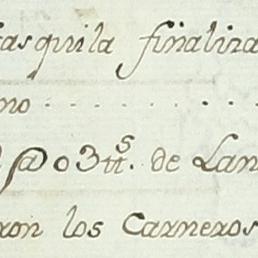 asquila finaliza
no . . . . . . . . .
@ 03 tt.s de Lan
ron los Carneros